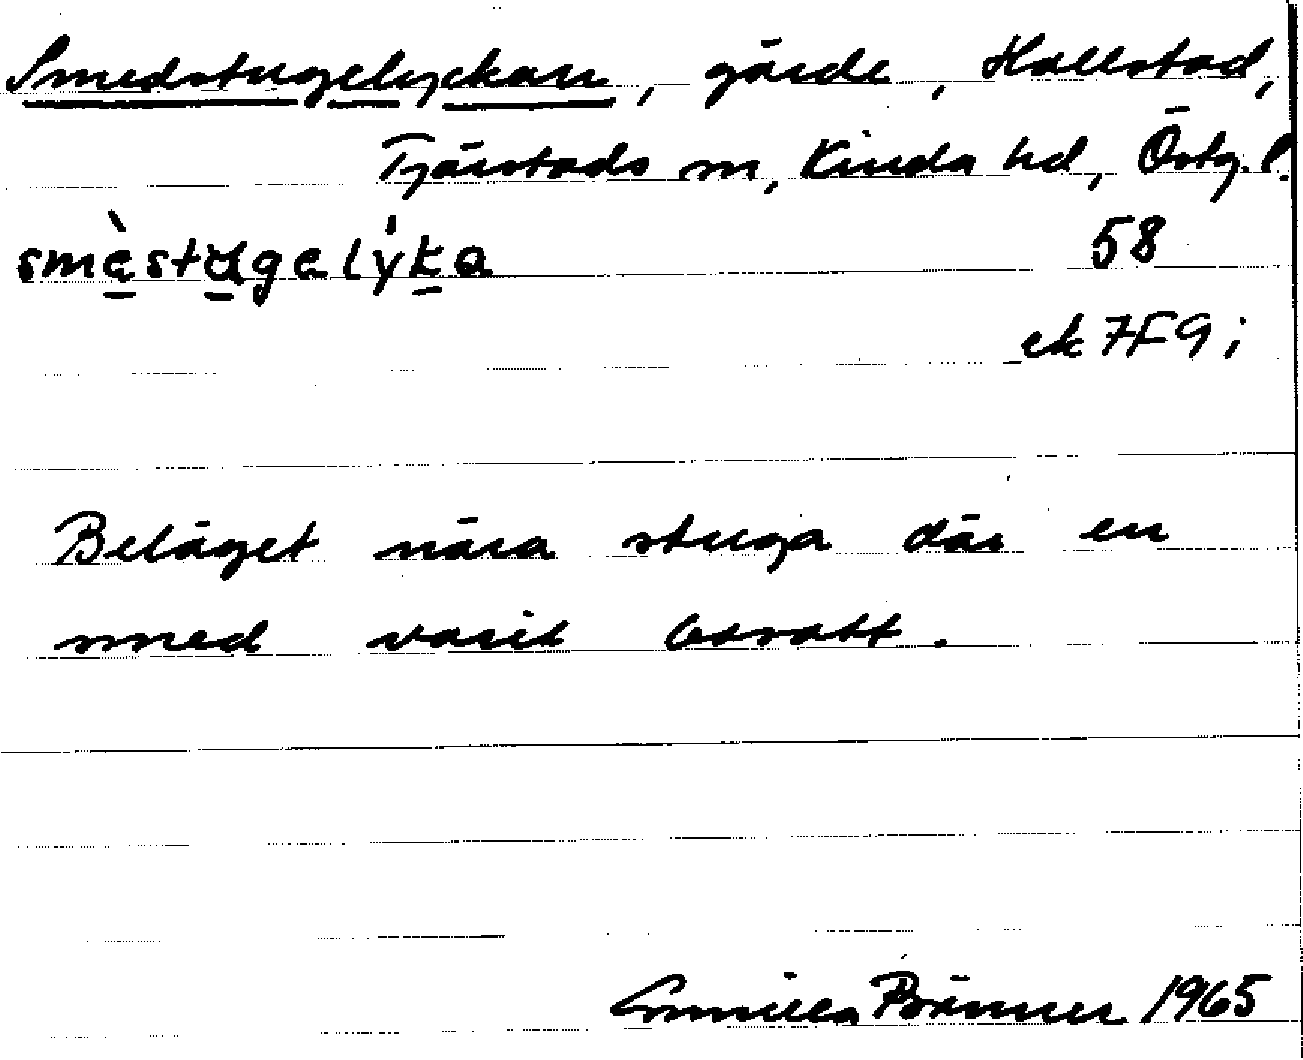 Smedstugelyckan, gärde, Hallstad,
Tjärstads sn, Kinda hd, Östg. l.
smèstugelýka 58
ek 7F9i
Beläget nära stuga där en
smed varit bosatt.
Gunilla Bränner 1965